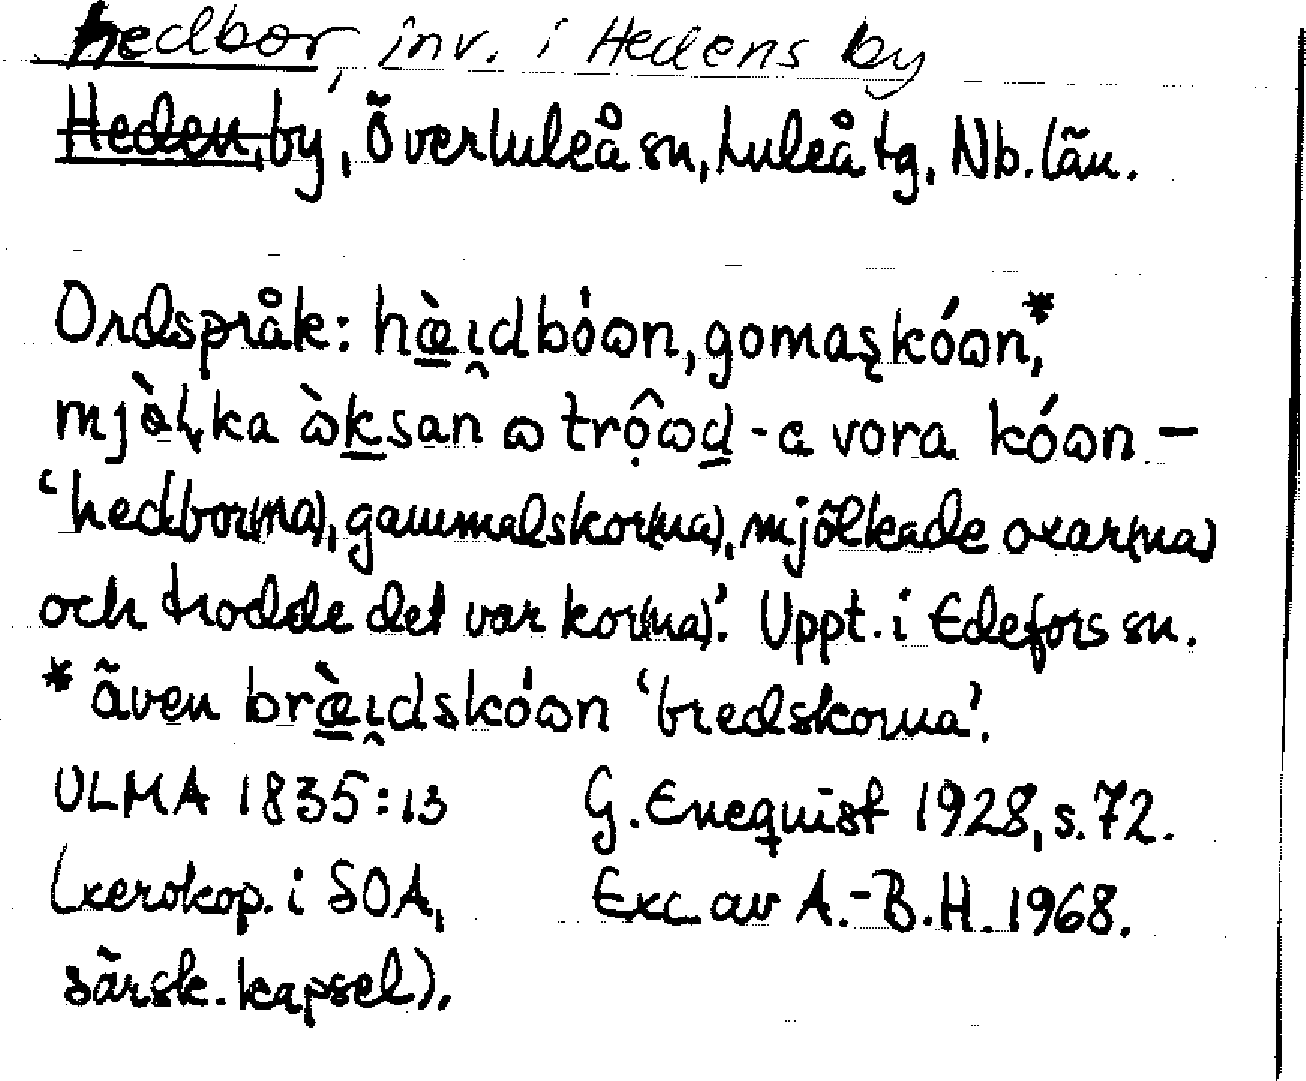 hedbor, inv. i Hedens by
Heden, by, Överluleå sn, Luleå tg, Nb. län.
Ordspråk: hæ̠̀i̯dbóɷn, gomaskóɷn,*
mjò̠ļka ɷ̀k̠san ɷ trộɷd̠ - a vora kóɷn –
‘hedbor(na), gammalskor(na), mjölkade oxar(na)
och trodde det var kor(na)’. Uppt. i Edefors sn.
* även bræ̠̀i̯dskóɷn ‘bredskorna’.
ULMA 1835:13 G. Enequist 1928, s. 72.
(xerokop. i SOA, Exc. av A.-B.H. 1968.
särsk. kapsel).